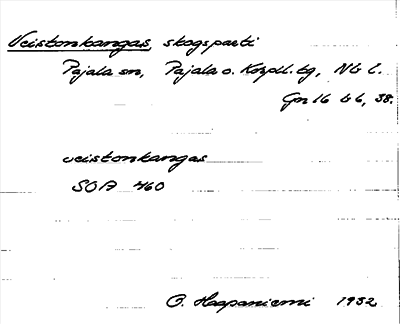 Veistonkangas, skogsparti
Pajala sn, Pajala o. Korpil. tg, Nb l.
Gn 16 b 6, 38.
veistonkangas
SOA 460
O. Haapaniemi 1932